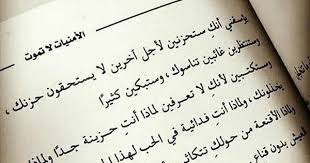 الأمنيات لا تموت
يؤسفني أنكِ ستحزنين لأجل آخرين لا يستحقون حزنك ،
وستنتظرين غائبين تناسوك ، وستبكين كثيرًا
وستكتئبين لأنك لا تعرفين لماذا أنتِ حزينة جدًا ولماذا
يخذلونك ، ولماذا أنتِ فدائية في الحب لهذا
ولماذا الأقنعة من حولكِ تتكاثر
لعيش بدون